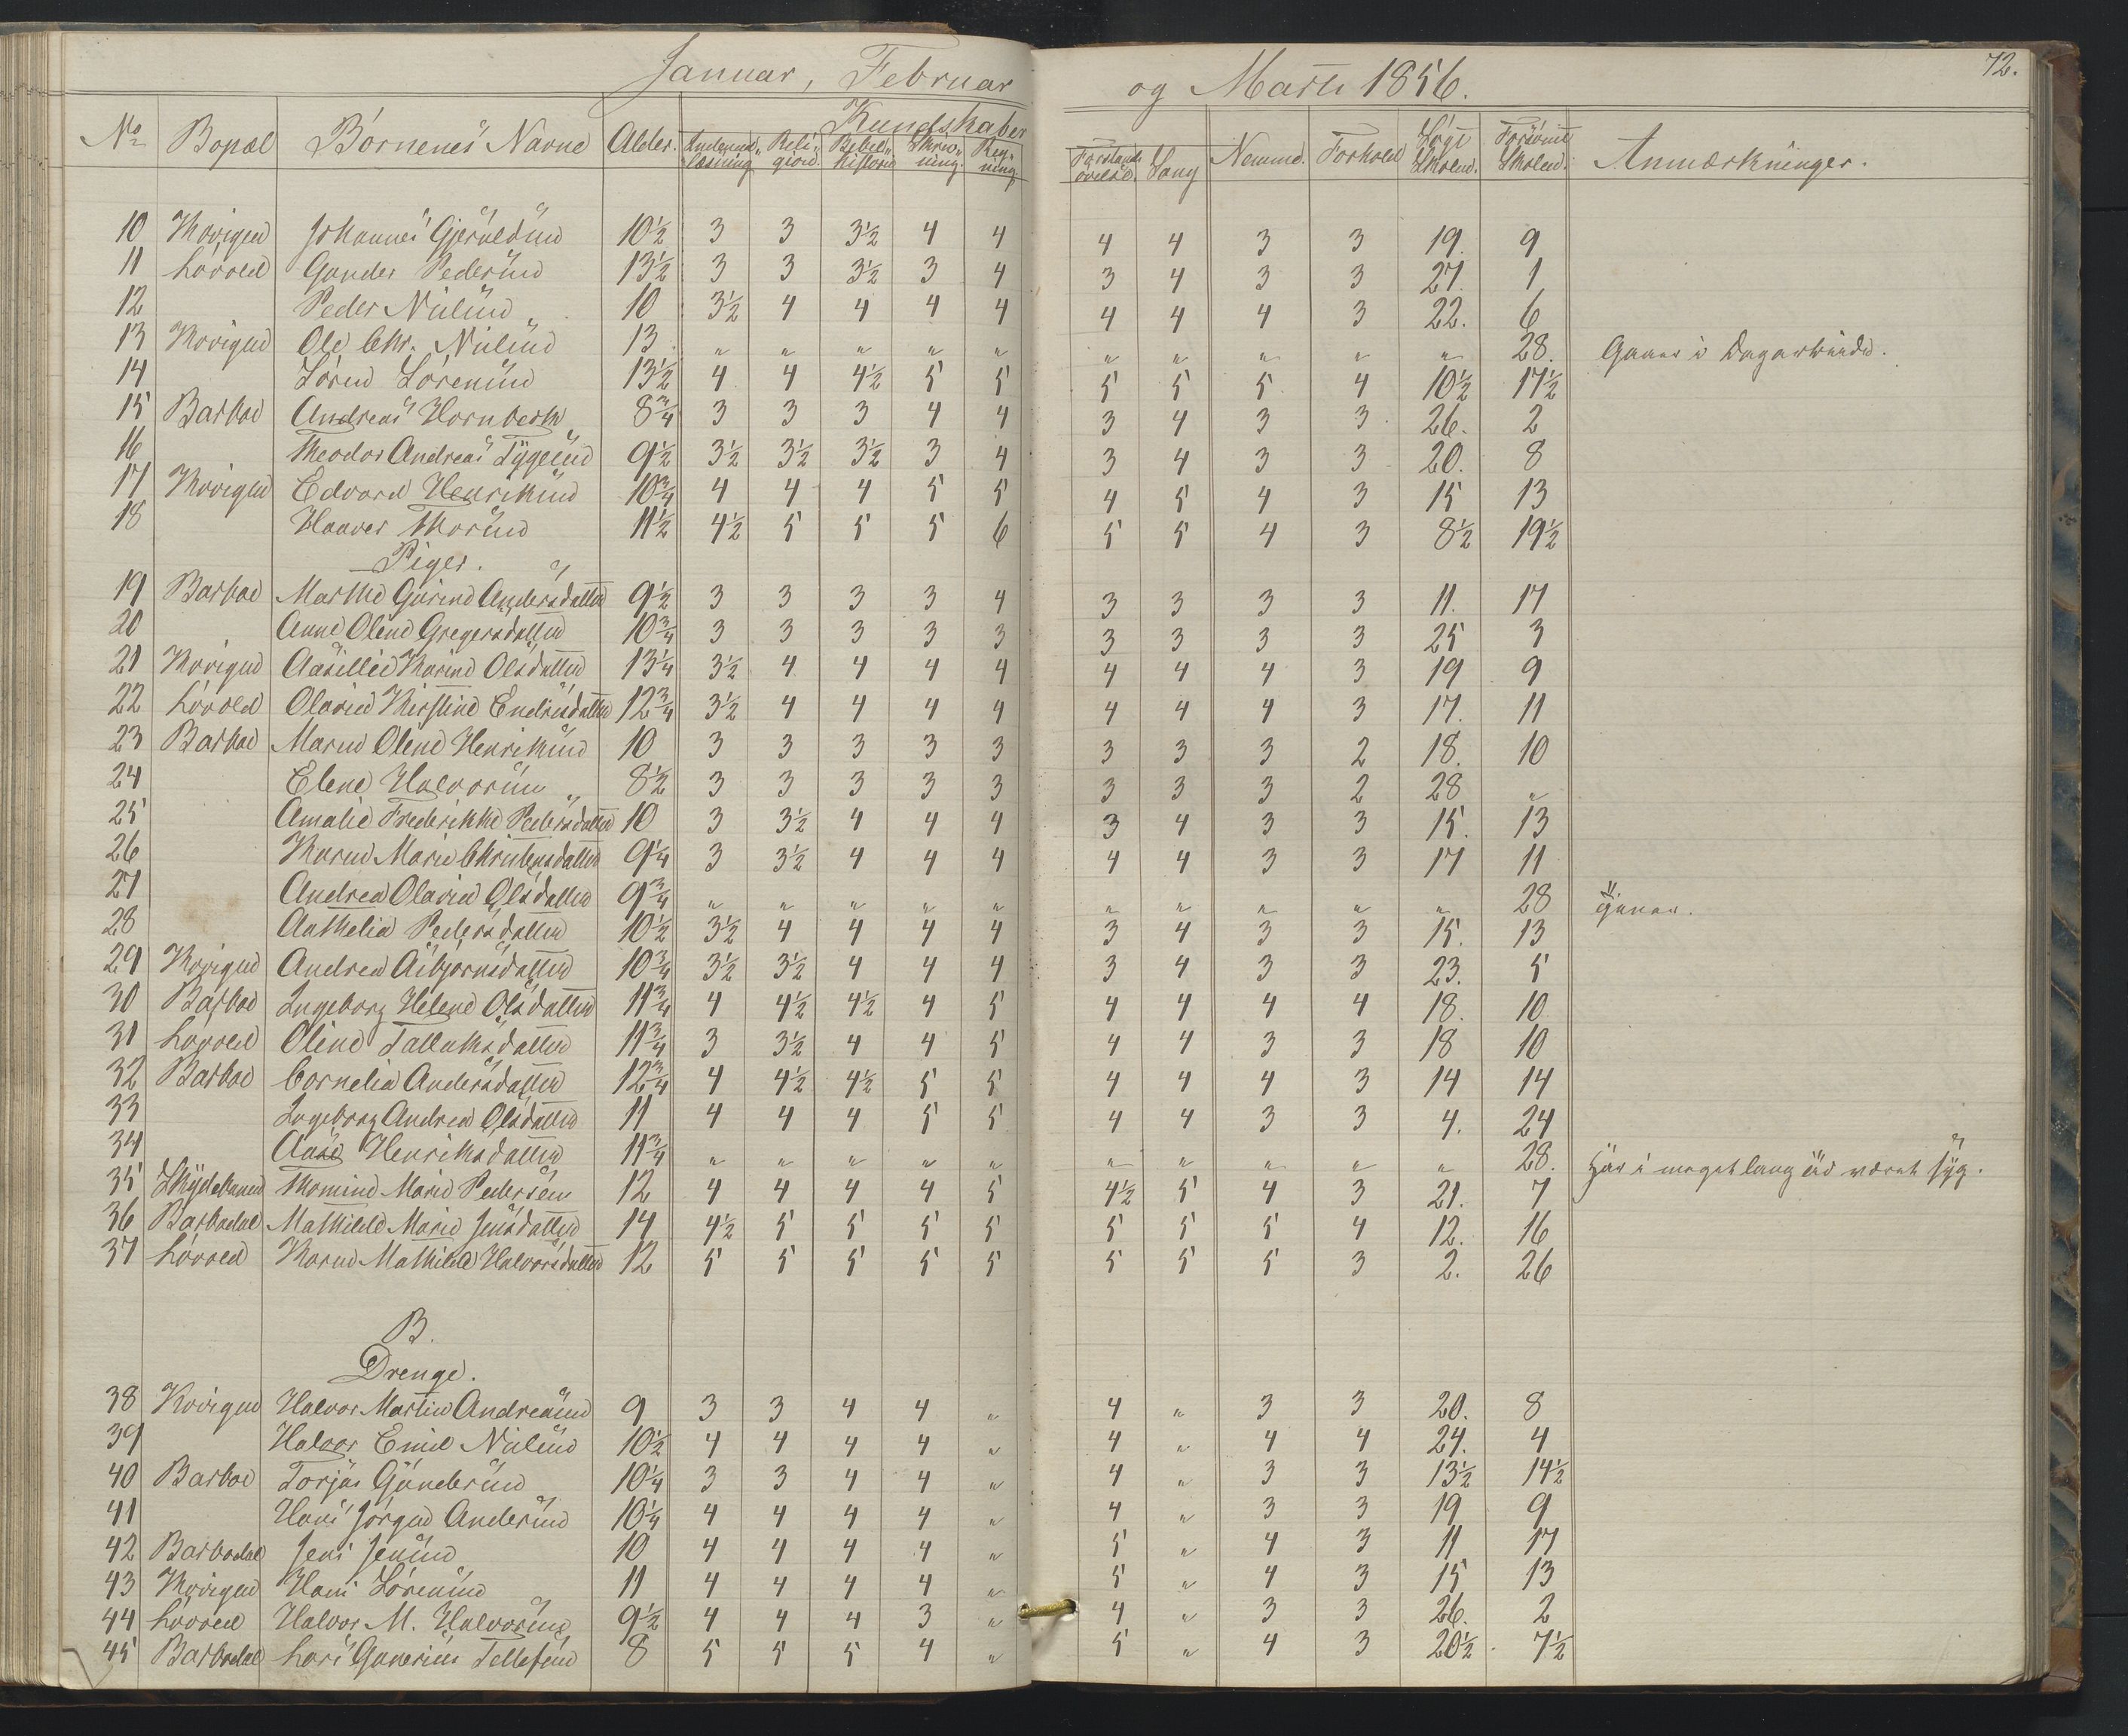 Januar, Februar og Marts 1856. 72.
No Bopæl Børnenes Navne Alder. Kundskaber Nemme. Forhold Søgt Skolen. Forsømt Skolen. Anmærkninger.
Indenadslæsning Religion Bibelhistorie Skrivning Regning Forstandsøvelse. Sang
10 Kvigen Johannes Gjeruldsen 10½ 3 3 3½ 4 4 4 4 3 3 19. 9
11 Løvold Gunder Pedersen 13½ 3 3 3½ 3 4 3 4 3 3 27. 1
12 Peder Nielsen 10 3½ 4 4 4 4 4 4 4 3 22. 6
13 Kvigen Ole Chr. Nielsen 13 " " " " " " " " " " 28. Gaaer i Dagarbeide.
14 Søren Sørensen 13½ 4 4 4½ 5 5 5 5 5 4 10½ 17½
15 Barboe Andreas Hornbech 8¾ 3 3 3 4 4 3 4 3 3 26. 2
16 Theodor Andreas Tygesen 9½ 3½ 3½ 3½ 3 4 3 4 3 3 20. 8
17 Kvigen Edvard Henriksen 10¾ 4 4 4 5 5 4 5 4 3 15 13
18 Haaver Thorsen 11½ 4½ 5 5 5 6 5 5 4 3 8½ 19½
Piger.
19 Barboe Marthe Gurine Andersdatter 9½ 3 3 3 3 4 3 3 3 3 11. 17
20 Anne Oline Gregersdatter 10¾ 3 3 3 3 3 3 3 3 3 25 3
21 Kvigen Aasillie Karine Olsdatter 13¼ 3½ 4 4 4 4 4 4 4 3 19 9
22 Løvold Olavie Kirstine Endresdatter 12¾ 3½ 4 4 4 4 4 4 4 3 17. 11
23 Barboe Maren Oline Henriksen 10 3 3 3 3 3 3 3 3 2 18. 10
24 Elene Halvorsen 8½ 3 3 3 3 3 3 3 3 2 28 "
25 Amalie Frederikke Pedersdatter 10 3 3½ 4 4 4 3 4 3 3 15. 13
26 Karen Marie Christensdatter 9¼ 3 3½ 4 4 4 4 4 3 3 17 11
27 Andrea Olavia Olsdatter 9¾ " " " " " " " " " " 28
28 Anthelie Pedersdatter 10½ 3½ 4 4 4 4 3 4 3 3 15. 13
29 Kvigen Andrea Asbjørnsdatter 10¾ 3½ 3½ 4 4 4 3 4 3 3 23. 5
30 Barboe Ingeborg Helene Olsdatter 11¾ 4 4½ 4½ 4 5 4 4 4 4 18. 10
31 Løvold Oline Tallaksdatter 11¾ 3 3½ 4 4 5 4 4 3 3 18 10
32 Barboe Cornelia Andersdatter 12¾ 4 4½ 4½ 5 5 4 4 4 3 14 14
33 Ingeborg Andrea Olsdatter 11 4 4 4 5 5 4 4 3 3 4. 24
34 Aase Henriksdatter 11¾ " " " " " " " " " " 28. Har i meget lang Tid været syg.
35 Skydebanen Thomine Marie Pedersen 12 4 4 4 4 5 4½ 5 4 3 21. 7
36 Barbodal Mathilde Marie Jensdatter 14 4½ 5 5 5 5 5 5 5 4 12. 16
37 Løvold Karen Mathilde Halvorsdatter 12 5 5 5 5 5 5 5 5 3 2. 26
B.
Drenge.
38 Kvigen Halvor Martin Andreasen 9 3 3 4 4 " 4 " 3 3 20. 8
39 Halvor Emil Nielsen 10½ 4 4 4 4 " 4 " 4 4 24. 4
40 Barboe Torjus Gundersen 10¼ 3 3 4 4 " 4 " 3 3 13½ 14½
41 Hans Jørgen Andersen 10¼ 4 4 4 4 " 4 " 3 3 19 9
42 Barbodal Jens Jensen 10 4 4 4 4 " 5 " 4 3 11 17
43 Kvigen Hans Sørensen 11 4 4 4 4 " 5 " 4 3 15 13
44 Løvold Halvor M. Halvorsen 9½ 4 4 4 3 " 4 " 3 3 26. 2
45 Barbodal Lars Gunerius Tellefsen 8 5 5 5 4 " 5 " 4 3 20½ 7½